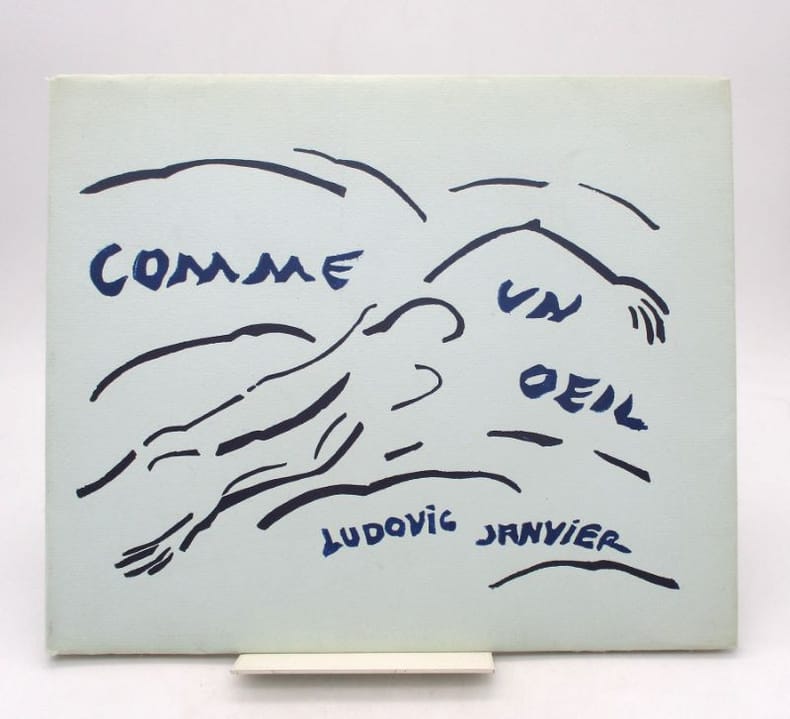 COMME
UN
OEIL
LUDOViC JANViER